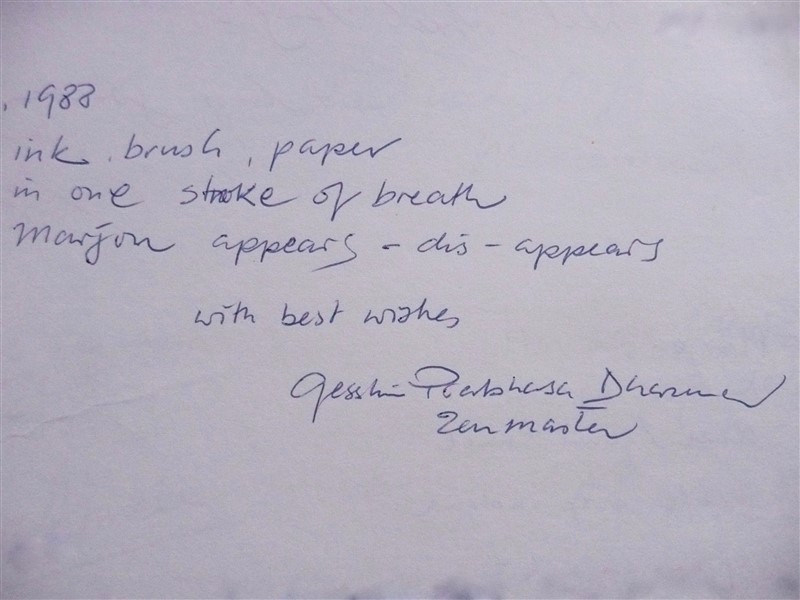 , 1988
ink, brush, paper
in one stroke of breath
Marjon appears - dis - appears
with best wishes
Gesshin Prabhasa Dharma
Zen master